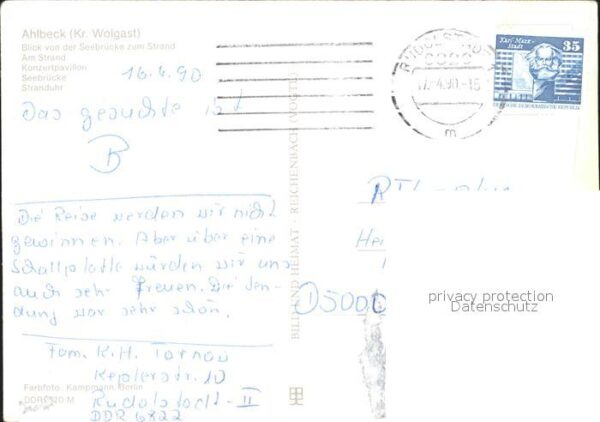 Ahlbeck (Kr. Wolgast)
Blick von der Seebrücke zum Strand
Am Strand
Konzertpavillon
Seebrücke
Stranduhr
16.4.90
Das gesuchte ist
B
Die Reise werden wir nicht
gewinnen. Aber über eine
Schallplatte würden wir uns
auch sehr freuen. Die Sen-
dung war sehr schön.
Fam. K.H. Tornow
Keplerstr. 10
Rudolstadt-II
DDR 6822
Farbfoto: Kampmann, Berlin
BILD UND HEIMAT · REICHENBACH (VOGTL)
RUDOLSTADT
17.-4.90-15
m
Karl-Marx-
Stadt
35
DEUTSCHE DEMOKRATISCHE REPUBLIK
RTL-plus
D5000
privacy protection
Datenschutz